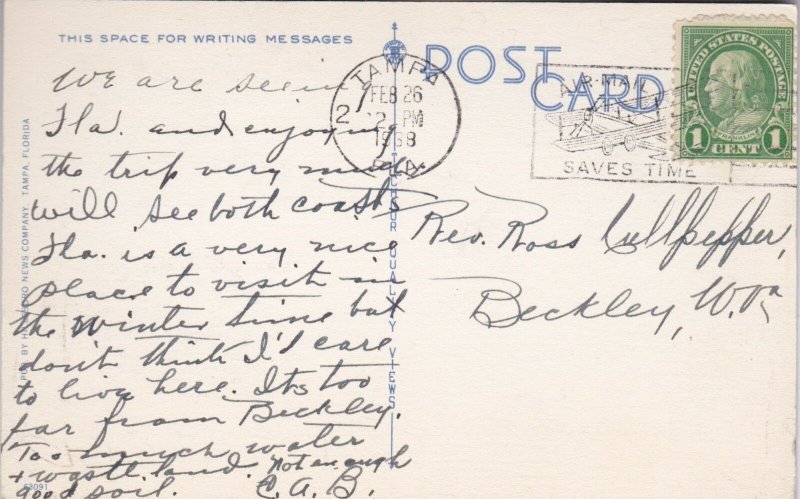 THIS SPACE FOR WRITING MESSAGES
POST CARD
TAMPA
FEB 26
2 PM
1938
FLA.
AIR-MAIL
SAVES TIME
UNITED STATES POSTAGE
FRANKLIN
1 CENT 1
We are seeing
Fla. and enjoying
the trip very much
will see both coasts
Fla. is a very nice
place to visit in
the winter time but
don't think I'd care
to live here. Its too
far from Beckley.
Too much water
+ waste land. Not enough
good soil. C.A.B.
Rev. Ross Cullpepper,
Beckley, W. Va
NEWS COMPANY, TAMPA, FLORIDA
QUALITY VIEWS
63091